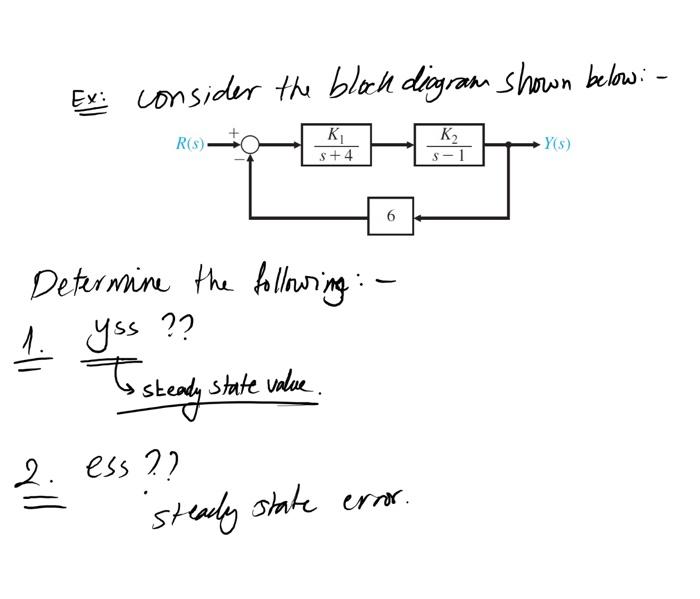 Ex: consider the block diagram shown below: -
R(s) + − K₁ K₂ Y(s)
s + 4 s − 1
6
Determine the following: -
1. yss ??
↳ steady state value.
2. ess ??
steady state error.